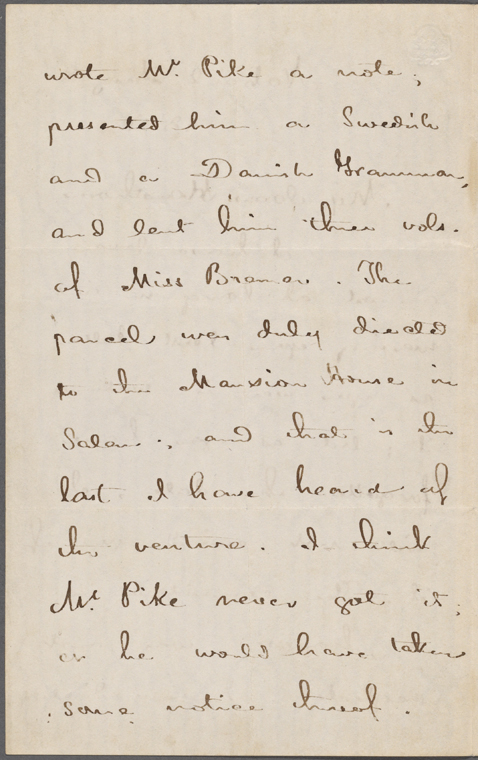 wrote Mr. Pike a note;
presented him a Swedish
and a Danish Grammar,
and lent him three vols.
of Miss Bremer. The
parcel was duly directed
to the Mansion House in
Salem; and that is the
last I have heard of
the venture. I think
Mr. Pike never got it;
or he would have taken
some notice thereof.